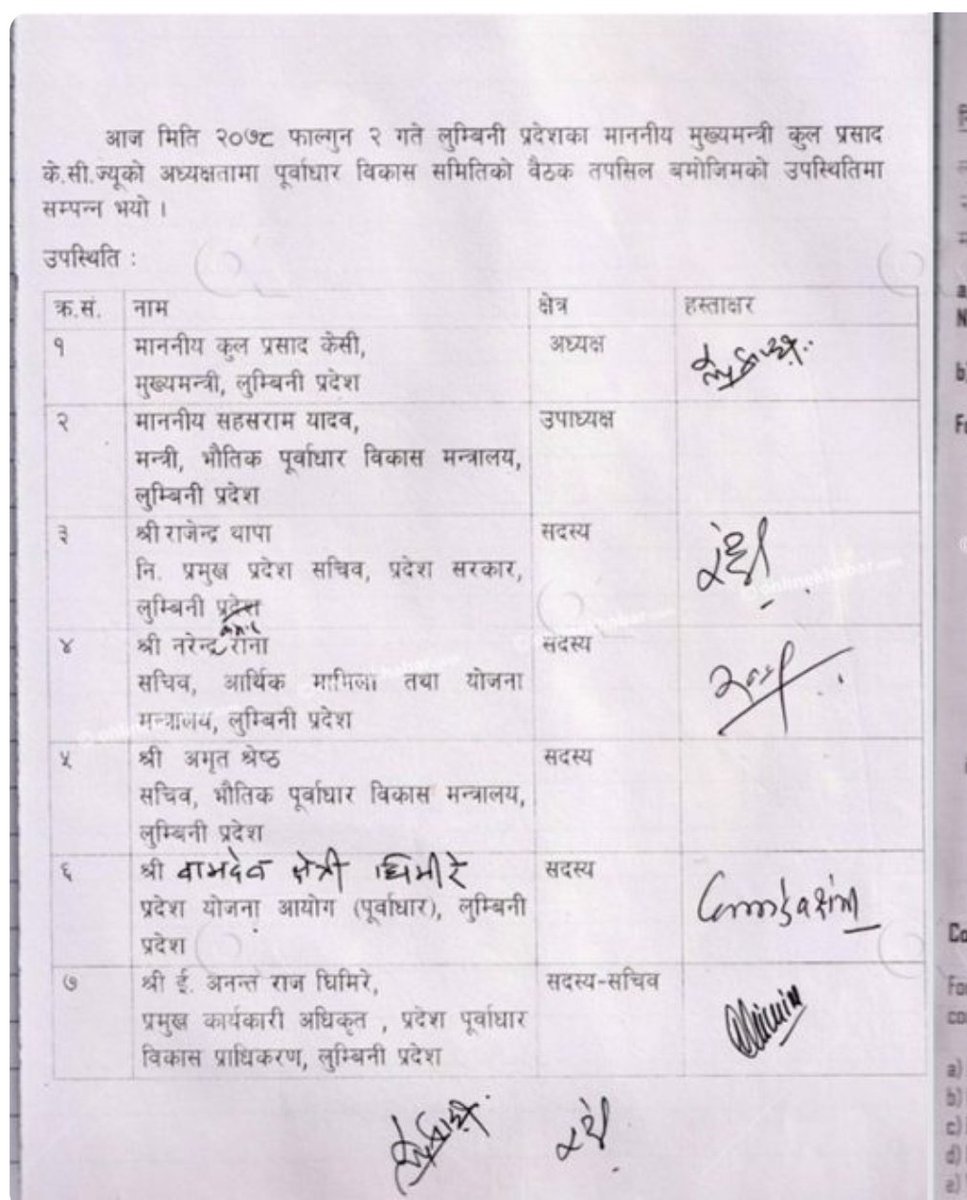 आज मिति २०७८ फाल्गुन २ गते लुम्बिनी प्रदेशका माननीय मुख्यमन्त्री कुल प्रसाद
के.सी.ज्यूको अध्यक्षतामा पूर्वाधार विकास समितिको बैठक तपसिल बमोजिमको उपस्थितिमा
सम्पन्न भयो ।
उपस्थिति :
क्र.सं. नाम क्षेत्र हस्ताक्षर
१ माननीय कुल प्रसाद केसी, अध्यक्ष
मुख्यमन्त्री, लुम्बिनी प्रदेश
२ माननीय सहसराम यादव, उपाध्यक्ष
मन्त्री, भौतिक पूर्वाधार विकास मन्त्रालय,
लुम्बिनी प्रदेश
३ श्री राजेन्द्र थापा सदस्य
नि. प्रमुख प्रदेश सचिव, प्रदेश सरकार,
लुम्बिनी प्रदेश
४ श्री नरेन्द्र राना सदस्य
सचिव, आर्थिक मामिला तथा योजना
मन्त्रालय, लुम्बिनी प्रदेश
५ श्री अमृत श्रेष्ठ सदस्य
सचिव, भौतिक पूर्वाधार विकास मन्त्रालय,
लुम्बिनी प्रदेश
६ श्री वामदेव क्षेत्री घिमीरे सदस्य
प्रदेश योजना आयोग (पूर्वाधार), लुम्बिनी
प्रदेश
७ श्री ई. अनन्त राज घिमिरे, सदस्य-सचिव
प्रमुख कार्यकारी अधिकृत , प्रदेश पूर्वाधार
विकास प्राधिकरण, लुम्बिनी प्रदेश